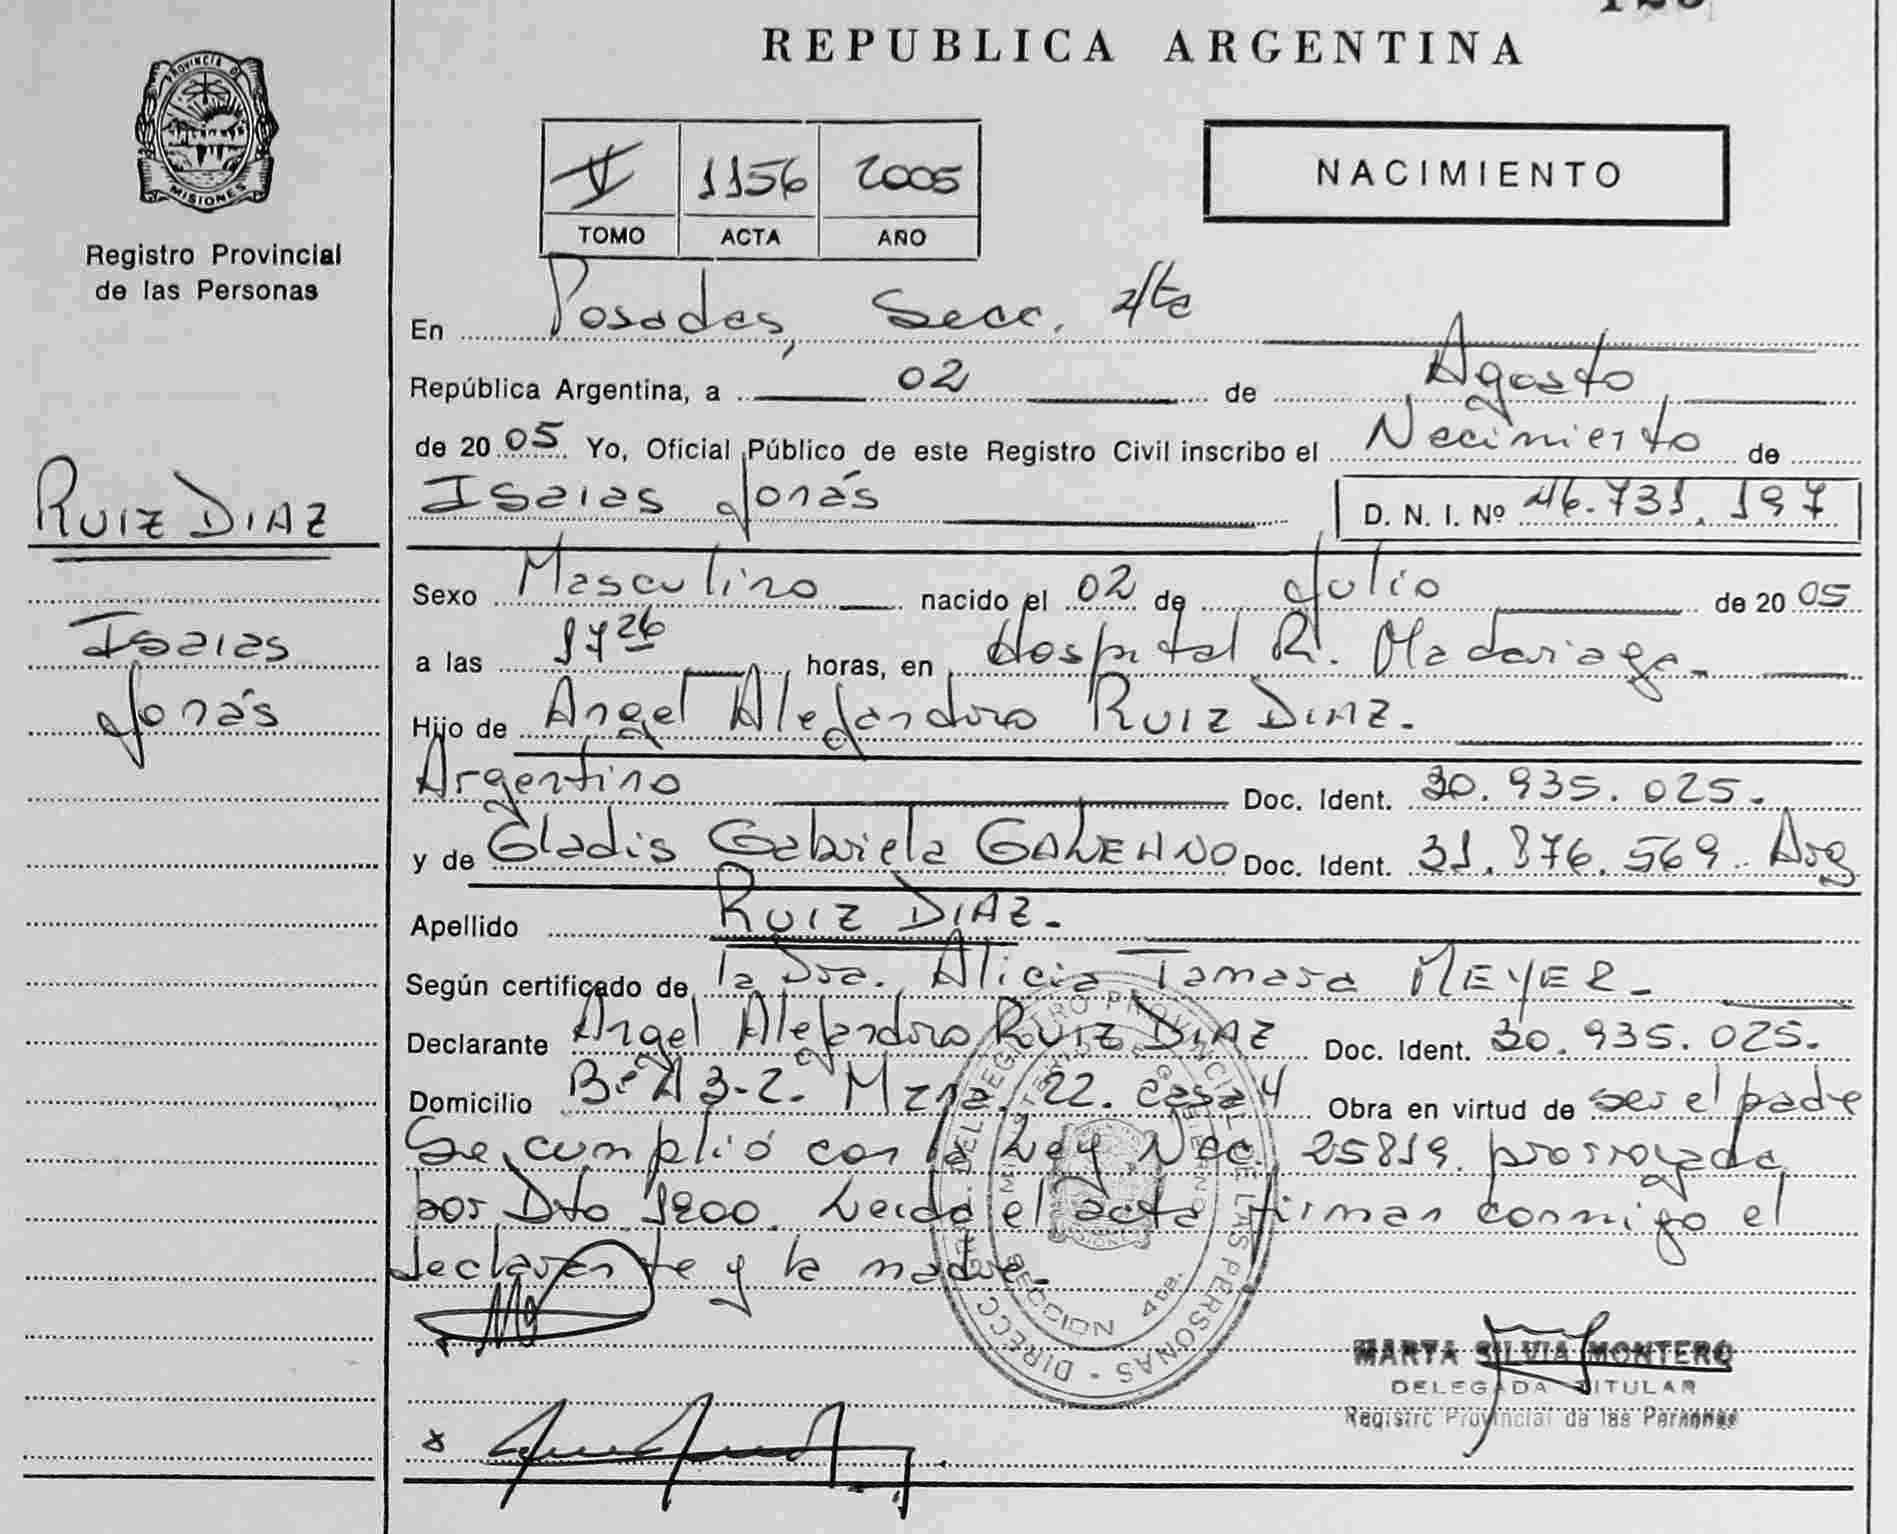 REPUBLICA ARGENTINA
PROVINCIA DE
MISIONES
Registro Provincial
de las Personas
V 1156 2005
TOMO ACTA AÑO
NACIMIENTO
RUIZ DIAZ
Isaias
Jonás
En Posadas, Secc. 4ta
República Argentina, a 02 de Agosto
de 2005 Yo, Oficial Público de este Registro Civil inscribo el Nacimiento de
Isaias Jonás D. N. I. Nº 46.731.197
Sexo Masculino nacido el 02 de Julio de 2005
a las 17 26 horas, en Hospital R. Madariaga.
Hijo de Angel Alejandro RUIZ DIAZ.
Argentino Doc. Ident. 30.935.025.
y de Gladis Gabriela GALEANO Doc. Ident. 31.876.569. Arg
Apellido RUIZ DIAZ.
Según certificado de la Dra. Alicia Tamara MEYER.
Declarante Angel Alejandro RUIZ DIAZ Doc. Ident. 30.935.025.
Domicilio Bº A 3-2. Mzna. 22. casa 4 Obra en virtud de ser el padre
Se cumplió con la Ley Nac. 25819. prorrogada
por Dto. 1200. Leida el acta firman conmigo el
declarante y la madre.
REGISTRO PROVINCIAL DE LAS PERSONAS
SECCION 4ta.
MARTA SILVIA MONTERO
DELEGADA TITULAR
Registro Provincial de las Personas
x